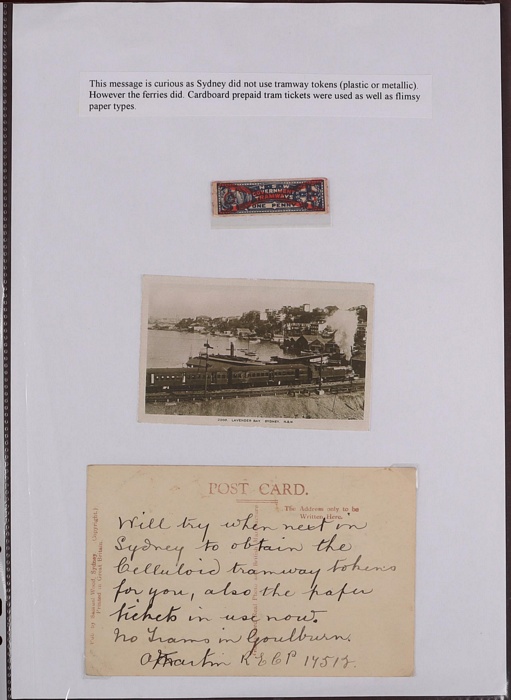 This message is curious as Sydney did not use tramway tokens (plastic or metallic).
However the ferries did. Cardboard prepaid tram tickets were used as well as flimsy
paper types.
N S W
GOVERNMENT
TRAMWAYS
ONE PENNY
LAVENDER BAY SYDNEY. N.S.W.
POST CARD.
The Address only to be
Written Here.
(Copyright.)
Pub. by Samuel Wood, Sydney
Printed in Great Britain.
Will try when next in
Sydney to obtain the
Celluloid tramway tokens
for you, also the paper
tickets in use now.
No Trams in Goulburn.
Martin